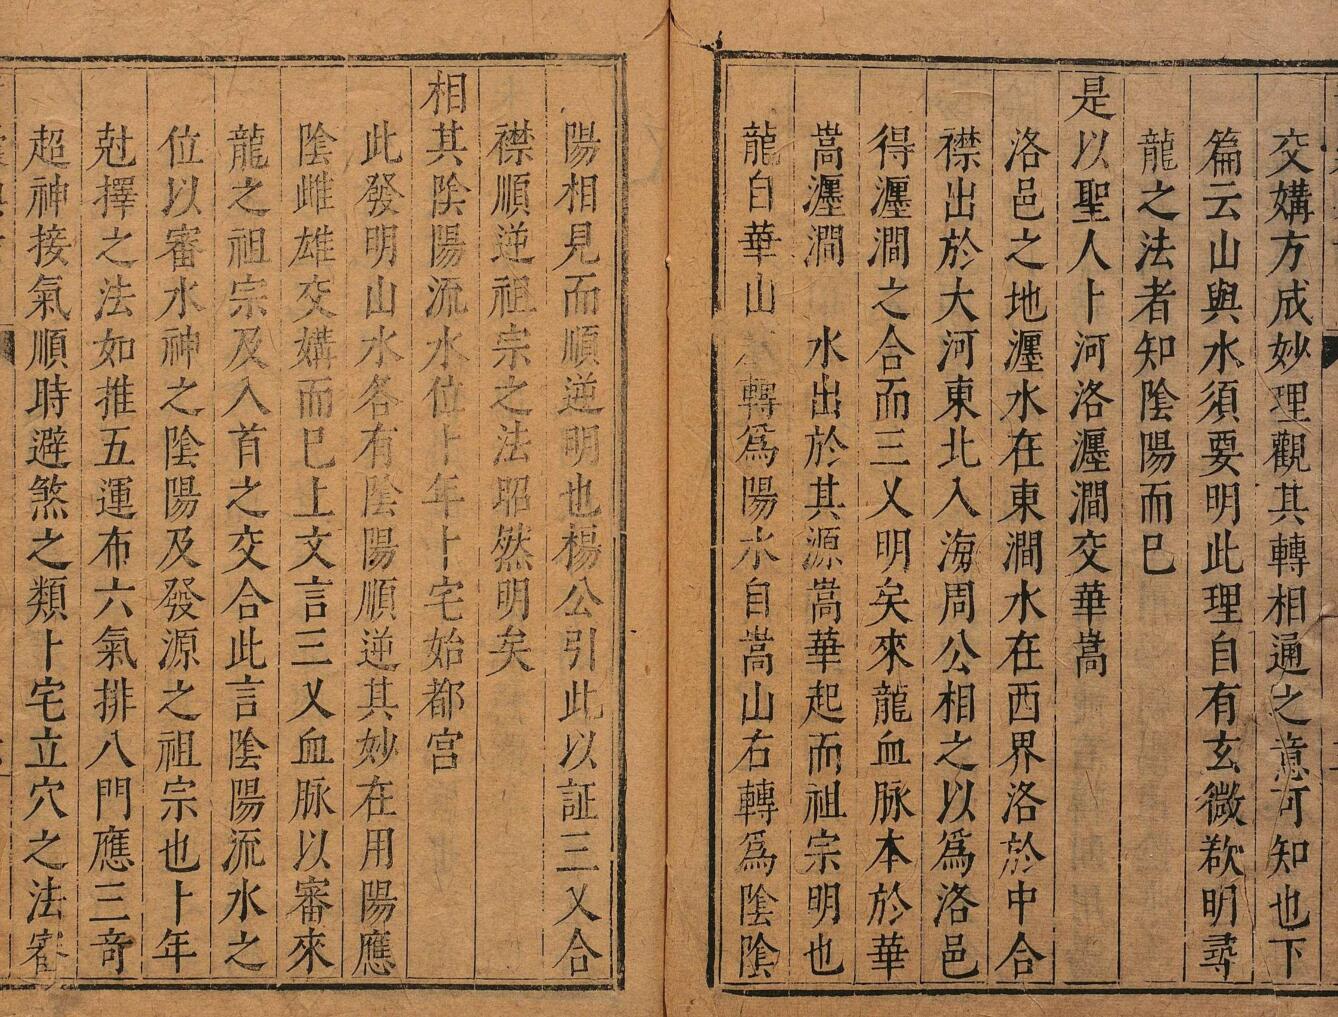 交媾方成妙理觀其轉相通之意可知也下
篇云山與水須要明此理自有玄微欲明尋
龍之法者知陰陽而已
是以聖人卜河洛瀍澗交華嵩
洛邑之地瀍水在東澗水在西界洛於中合
襟出於大河東北入海周公相之以爲洛邑
得瀍澗之合而三乂明矣來龍血脉本於華
嵩瀍澗 水出於其源嵩華起而祖宗明也
龍自華山 轉爲陽水自嵩山右轉爲陰陰
陽相見而順逆明也楊公引此以証三乂合
襟順逆祖宗之法昭然明矣
相其陰陽流水位卜年卜宅始都宫
此發明山水各有陰陽順逆其妙在用陽應
陰雌雄交媾而巳上文言三乂血脉以審來
龍之祖宗及入首之交合此言陰陽流水之
位以審水神之陰陽及發源之祖宗也卜年
尅擇之法如推五運布六氣排八門應三奇
超神接氣順時避煞之類卜宅立穴之法審